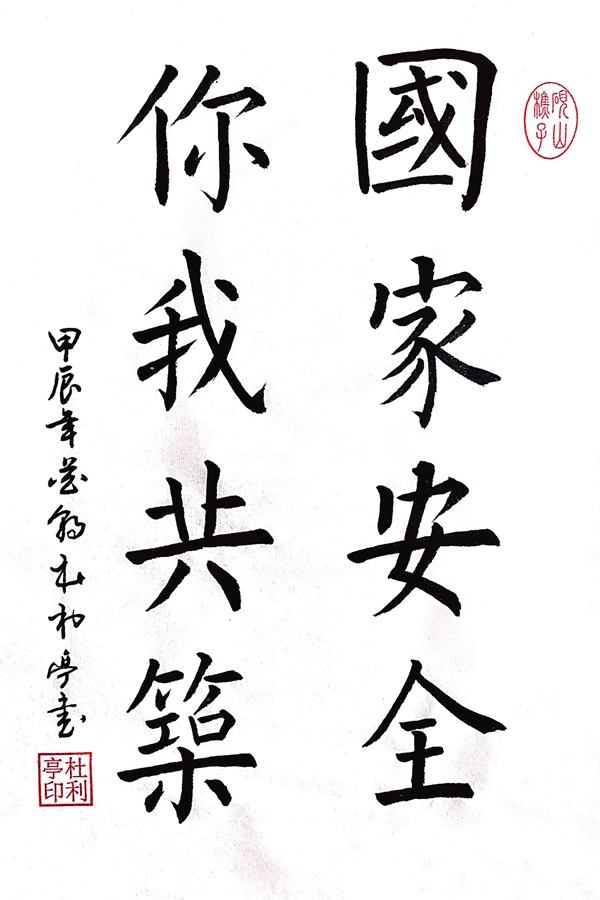 硯山樵子
國家安全
你我共築
甲辰年杜利亭書
杜利亭印